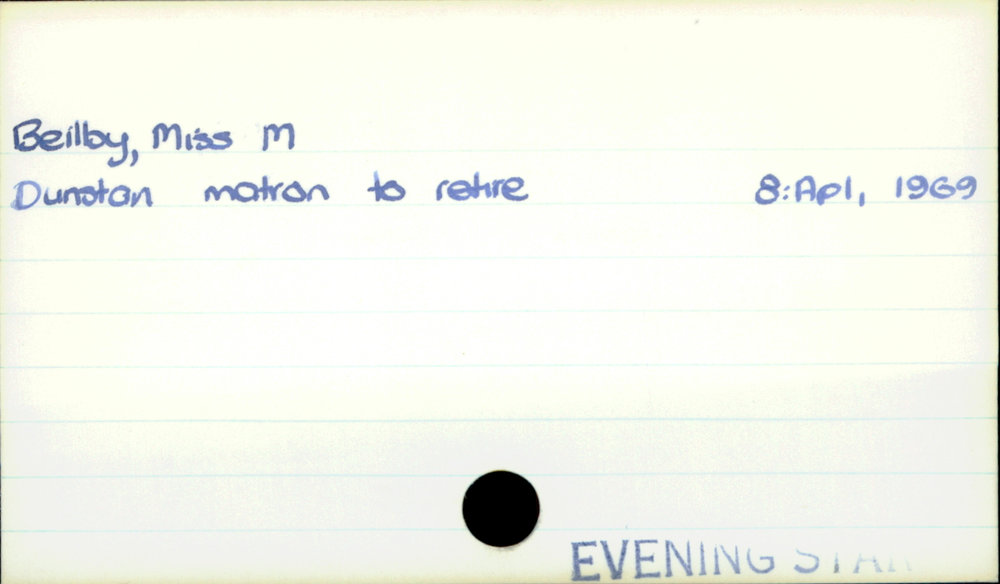 Beilby, Miss M
Dunstan matron to retire 8:Apl, 1969
EVENING STAR